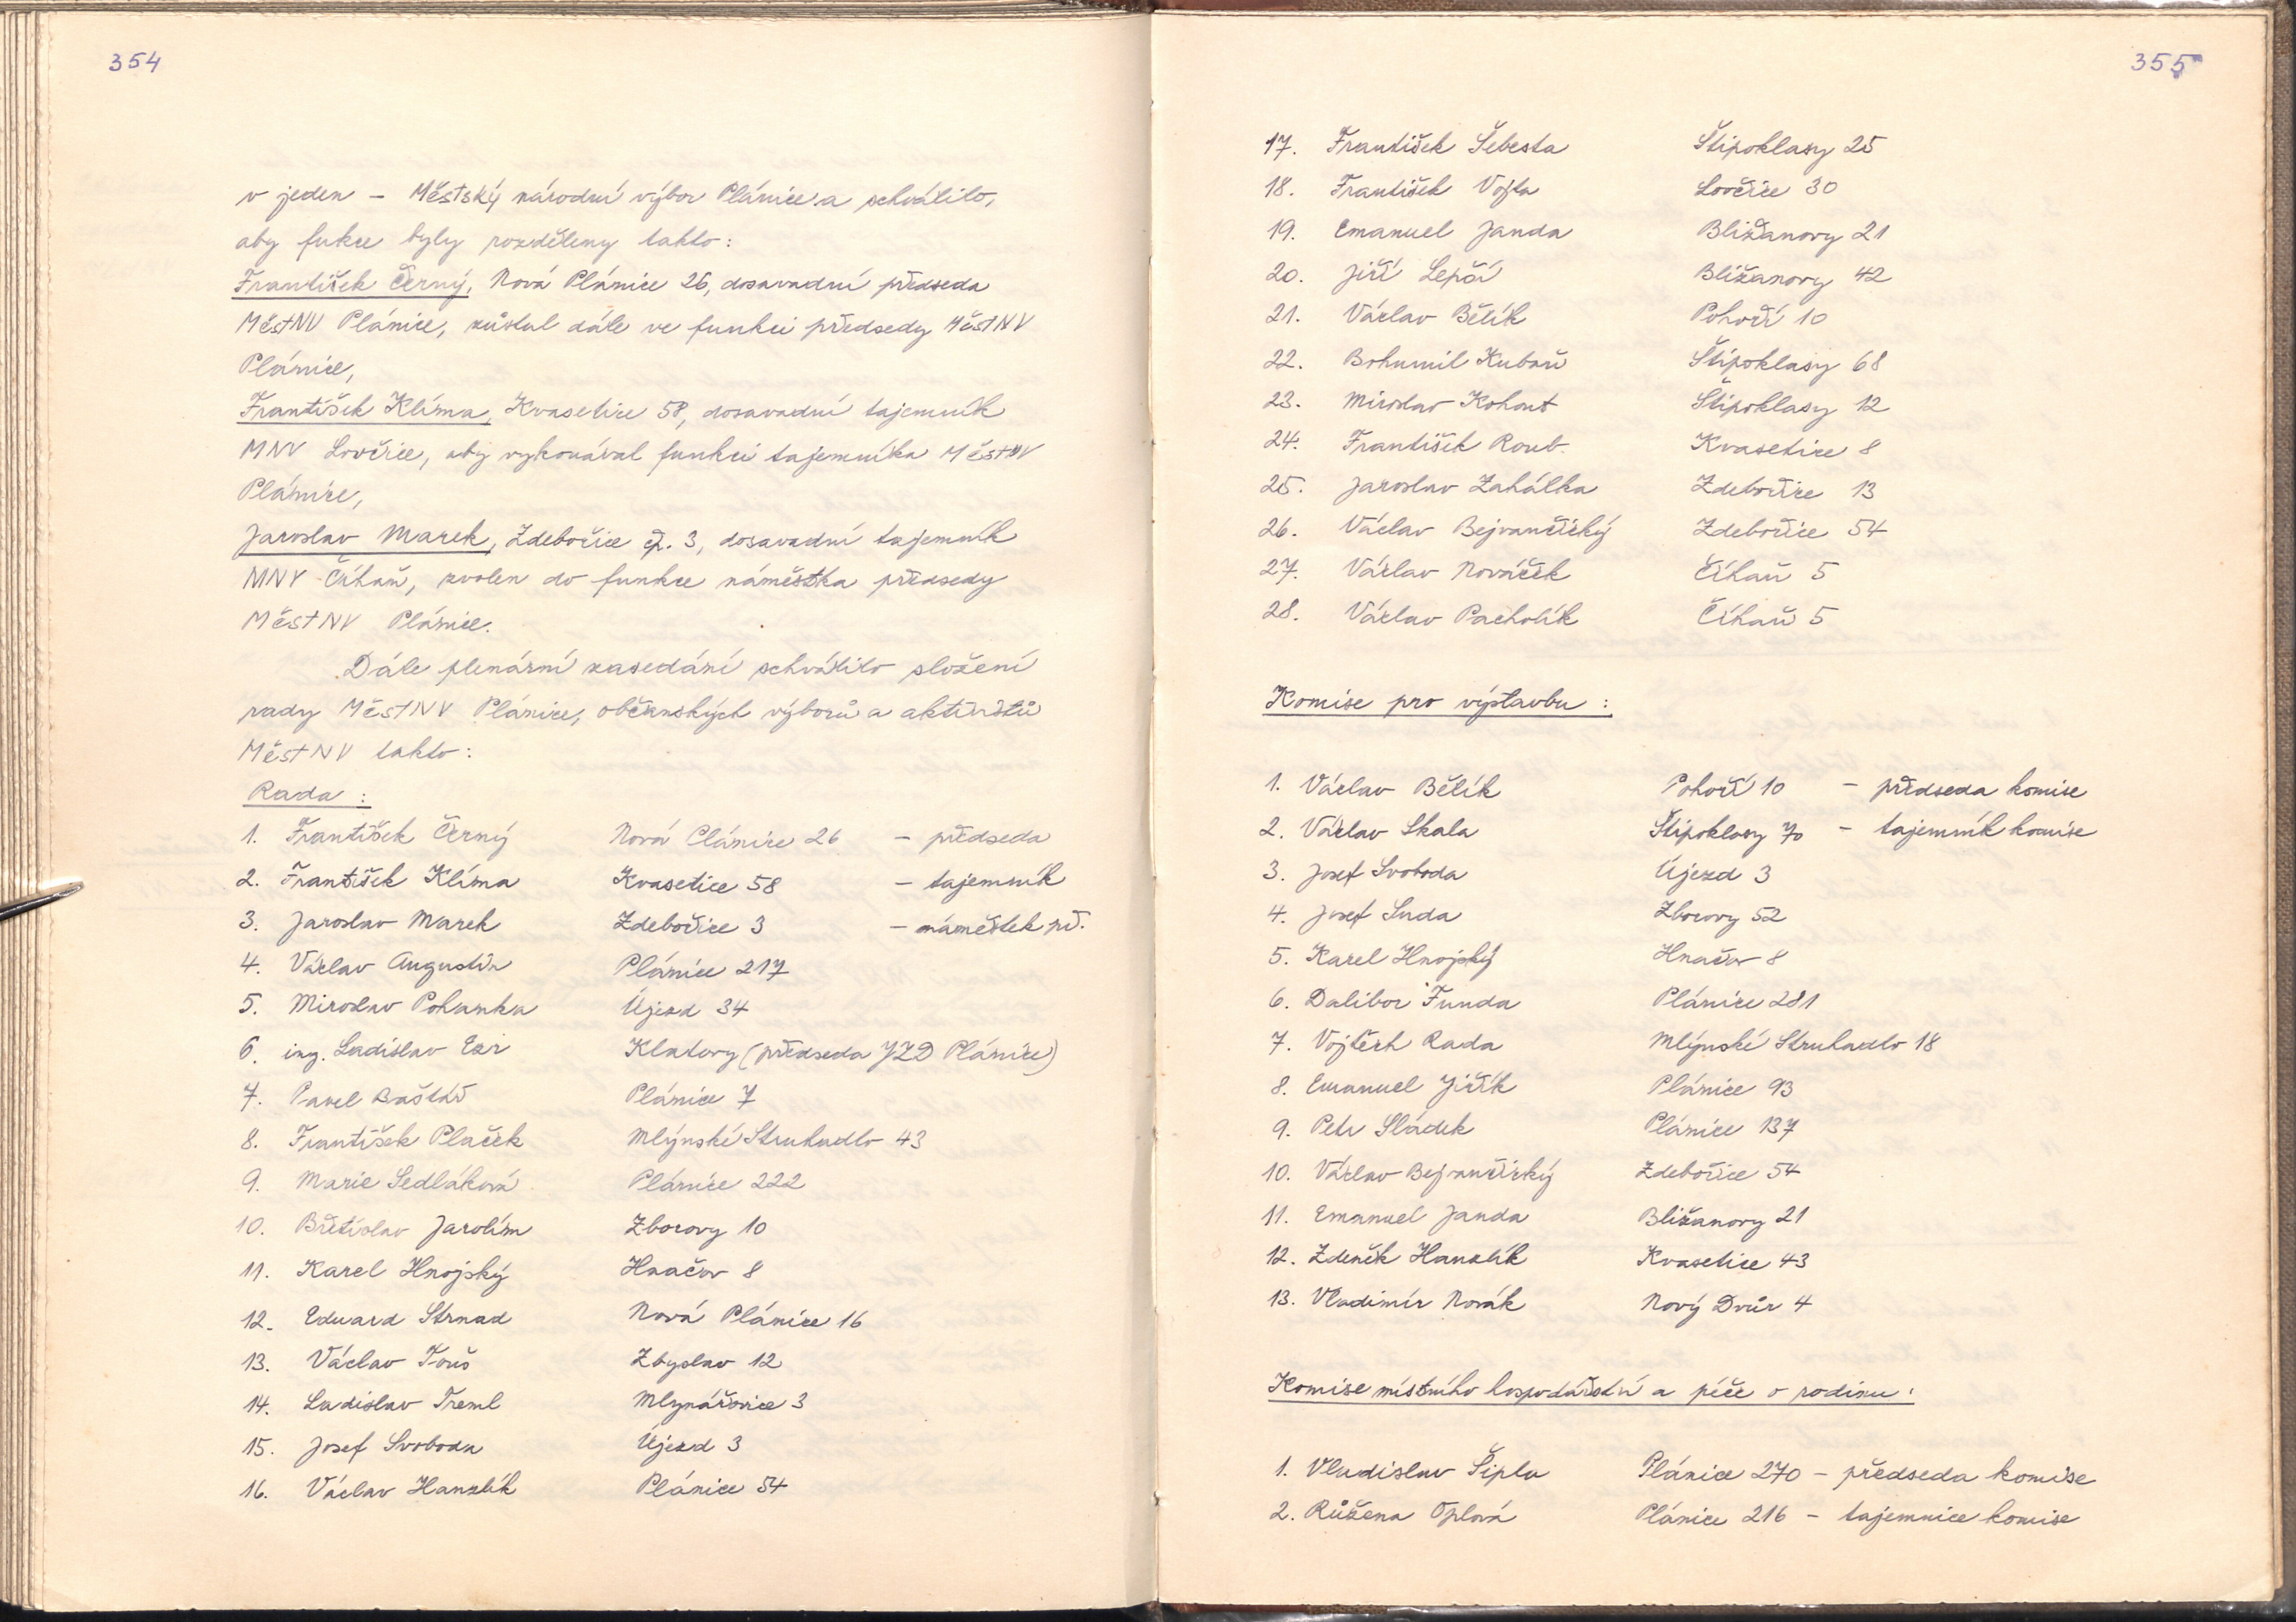 354
v jeden - Městský národní výbor Plánice a schválilo,
aby fukce byly rozděleny takto:
František Černý, Nová Plánice 26, dosavadní předseda
MěstNV Plánice, zůstal dále ve funkci předsedy MěstNV
Plánice,
František Klíma, Kvasetice 58, dosavadní tajemník
MNV Lovčice, aby vykonával funkci tajemníka MěstNV
Plánice,
Jaroslav Marek, Zdebořice čp. 3, dosavadní tajemník
MNV Číhaň, zvolen do funkce náměstka předsedy
MěstNV Plánice.
Dále plenární zasedání schválilo složení
rady MěstNV Plánice, občanských výborů a aktivistů
MěstNV takto:
Rada:
1. František Černý Nová Plánice 26 - předseda
2. František Klíma Kvasetice 58 - tajemník
3. Jaroslav Marek Zdebořice 3 - náměstek př.
4. Václav Augustin Plánice 217
5. Miroslav Pohanka Újezd 34
6. ing. Ladislav Exr Klatovy (předseda JZD Plánice)
7. Pavel Baštář Plánice 7
8. František Plaček Mlýnské Struhadlo 43
9. Marie Sedláková Plánice 222
10. Břetislav Jarolím Zborovy 10
11. Karel Hnojský Hnačov 8
12. Eduard Strnad Nová Plánice 16
13. Václav Touš Zbyslav 12
14. Ladislav Treml Mlynářovice 3
15. Josef Svoboda Újezd 3
16. Václav Hanzlík Plánice 54
355
17. František Šebesta Štipoklasy 25
18. František Vojta Lovčice 30
19. Emanuel Janda Bližanovy 21
20. Jiří Lepší Bližanovy 42
21. Václav Bělík Pohoří 10
22. Bohumil Kubaň Štipoklasy 68
23. Miroslav Kohout Štipoklasy 12
24. František Roub Kvasetice 8
25. Jaroslav Zahálka Zdebořice 13
26. Václav Bejvančický Zdebořice 54
27. Václav Nováček Číhaň 5
28. Václav Pacholík Číhaň 5
Komise pro výstavbu:
1. Václav Bělík Pohoří 10 - předseda komise
2. Václav Skala Štipoklasy 70 - tajemník komise
3. Josef Svoboda Újezd 3
4. Josef Suda Zborovy 52
5. Karel Hnojský Hnačov 8
6. Dalibor Funda Plánice 281
7. Vojtěch Rada Mlýnské Struhadlo 18
8. Emanuel Jiřík Plánice 93
9. Petr Sládek Plánice 137
10. Václav Bejvančický Zdebořice 54
11. Emanuel Janda Bližanovy 21
12. Zdeněk Hanzlík Kvasetice 43
13. Vladimír Novák Nový Dvůr 4
Komise místního hospodářství a péče o rodinu:
1. Vladislav Šipla Plánice 270 - předseda komise
2. Růžena Oplová Plánice 216 - tajemnice komise